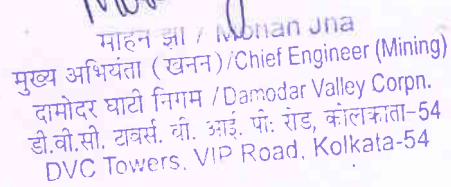 मोहन झा / Mohan Jha
मुख्य अभियंता ( खनन ) /Chief Engineer (Mining)
दामोदर घाटी निगम /Damodar Valley Corpn.
डी.वी.सी. टावर्स. वी. आई. पी: रोड, कोलकाता-54
DVC Towers, VIP Road, Kolkata-54